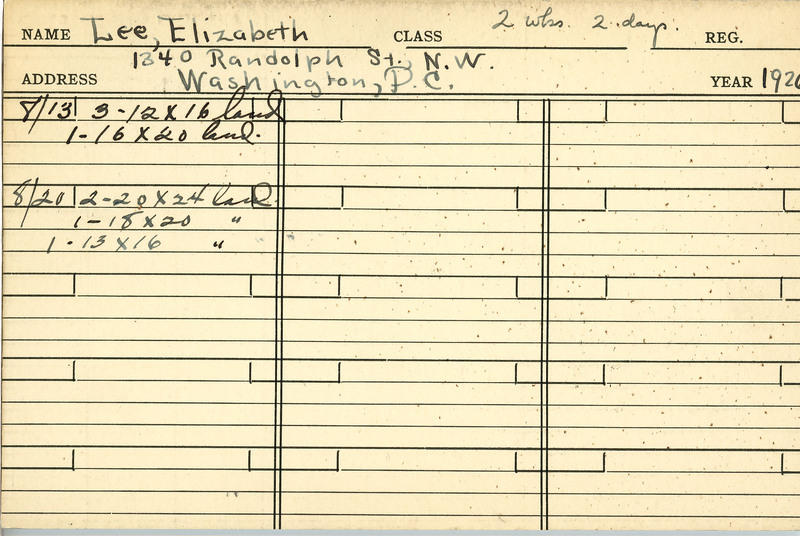 NAME Lee, Elizabeth CLASS 2 wks. 2 days. REG.
ADDRESS 1340 Randolph St., N.W.
Washington, D.C. YEAR 1926
8/13 3-12 x 16 land
1-16 x 20 land.
8/20 2-20 x 24 land
1-18 x 20 "
1-13 x 16 "